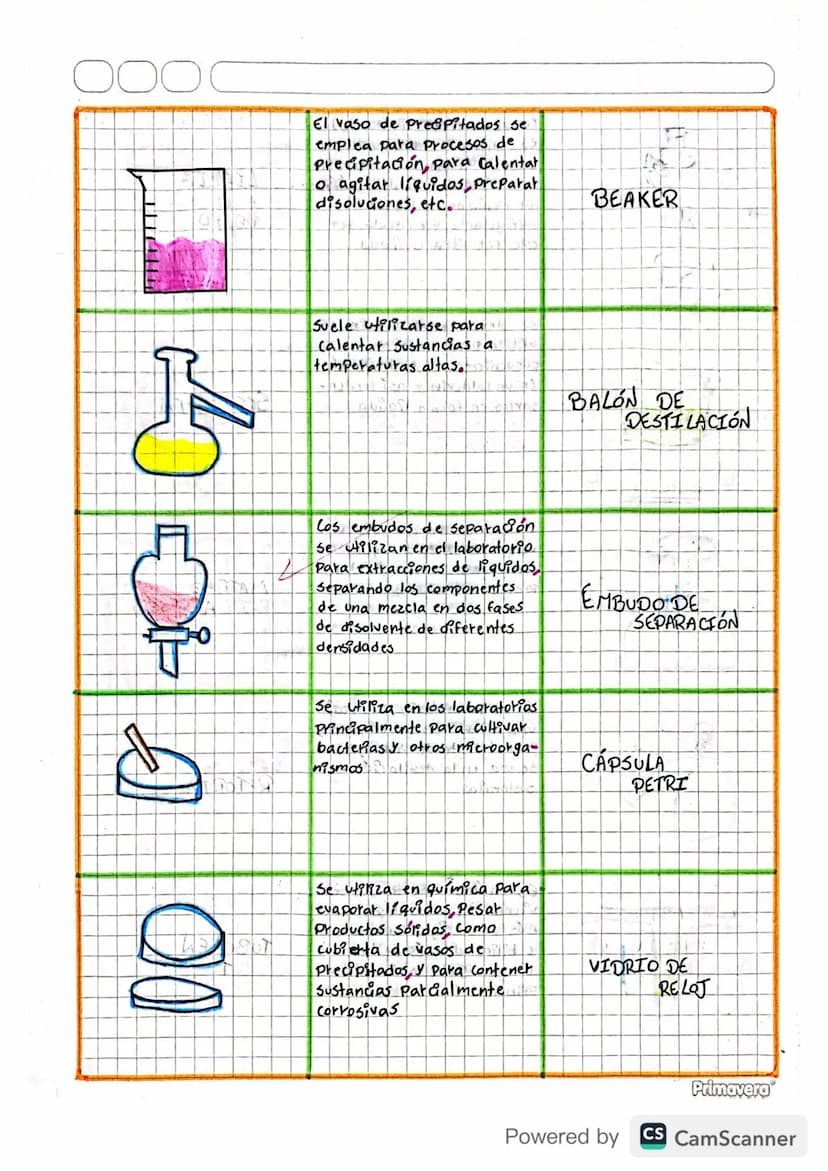 El vaso de precipitados se
emplea para procesos de
precipitación, para calentar
o agitar líquidos, preparar
disoluciones, etc.
BEAKER
Suele utilizarse para
calentar sustancias a
temperaturas altas.
BALÓN DE
DESTILACIÓN
Los embudos de separación
se utilizan en el laboratorio
para extracciones de líquidos,
separando los componentes
de una mezcla en dos fases
de disolvente de diferentes
densidades
EMBUDO DE
SEPARACIÓN
Se utiliza en los laboratorios
principalmente para cultivar
bacterias y otros microorga-
nismos
CÁPSULA
PETRI
Se utiliza en química para
evaporar líquidos, pesar
productos sólidos, como
cubierta de vasos de
precipitados, y para contener
sustancias parcialmente
corrosivas
VIDRIO DE
RELOJ
Primavera
Powered by CS CamScanner